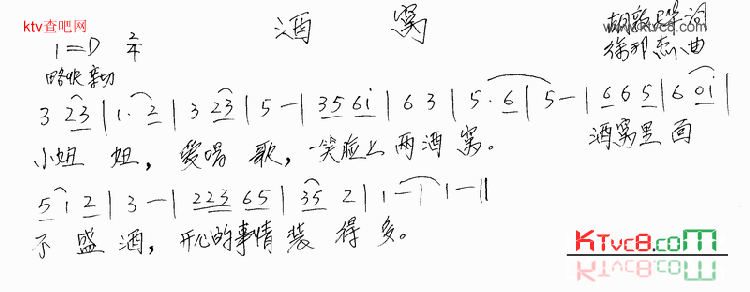 ktv查吧网
酒窝
www.ktvc8.com
1=D 2/4
略快 亲切
徐邦杰曲
3 23 | 1· 2 | 3 23 | 5 — | 35 6i | 6 3 | 5· 6 | 5 — | 6 6 5 | 6 0i |
小姐 姐，爱唱 歌，笑脸上 两酒 窝。 酒窝里 面
5 i 2 | 3 — | 223 65 | 35 2 | 1 — | 1 — ‖
不 盛 酒，开心的事情 装 得 多。
KTvc8.com